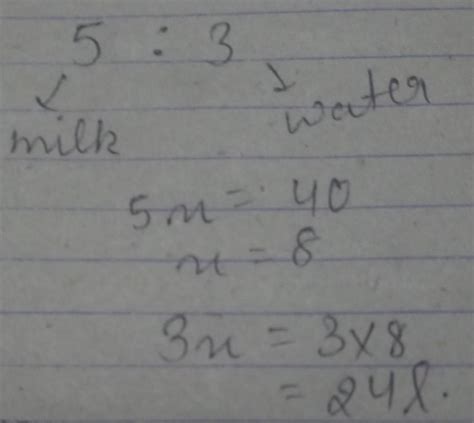 5 : 3
milk water
5x = 40
x = 8
3x = 3×8
= 24l.